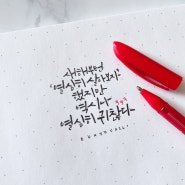 새해부턴
열심히 살아보자
했지만
역시나
열심히 귀찮다